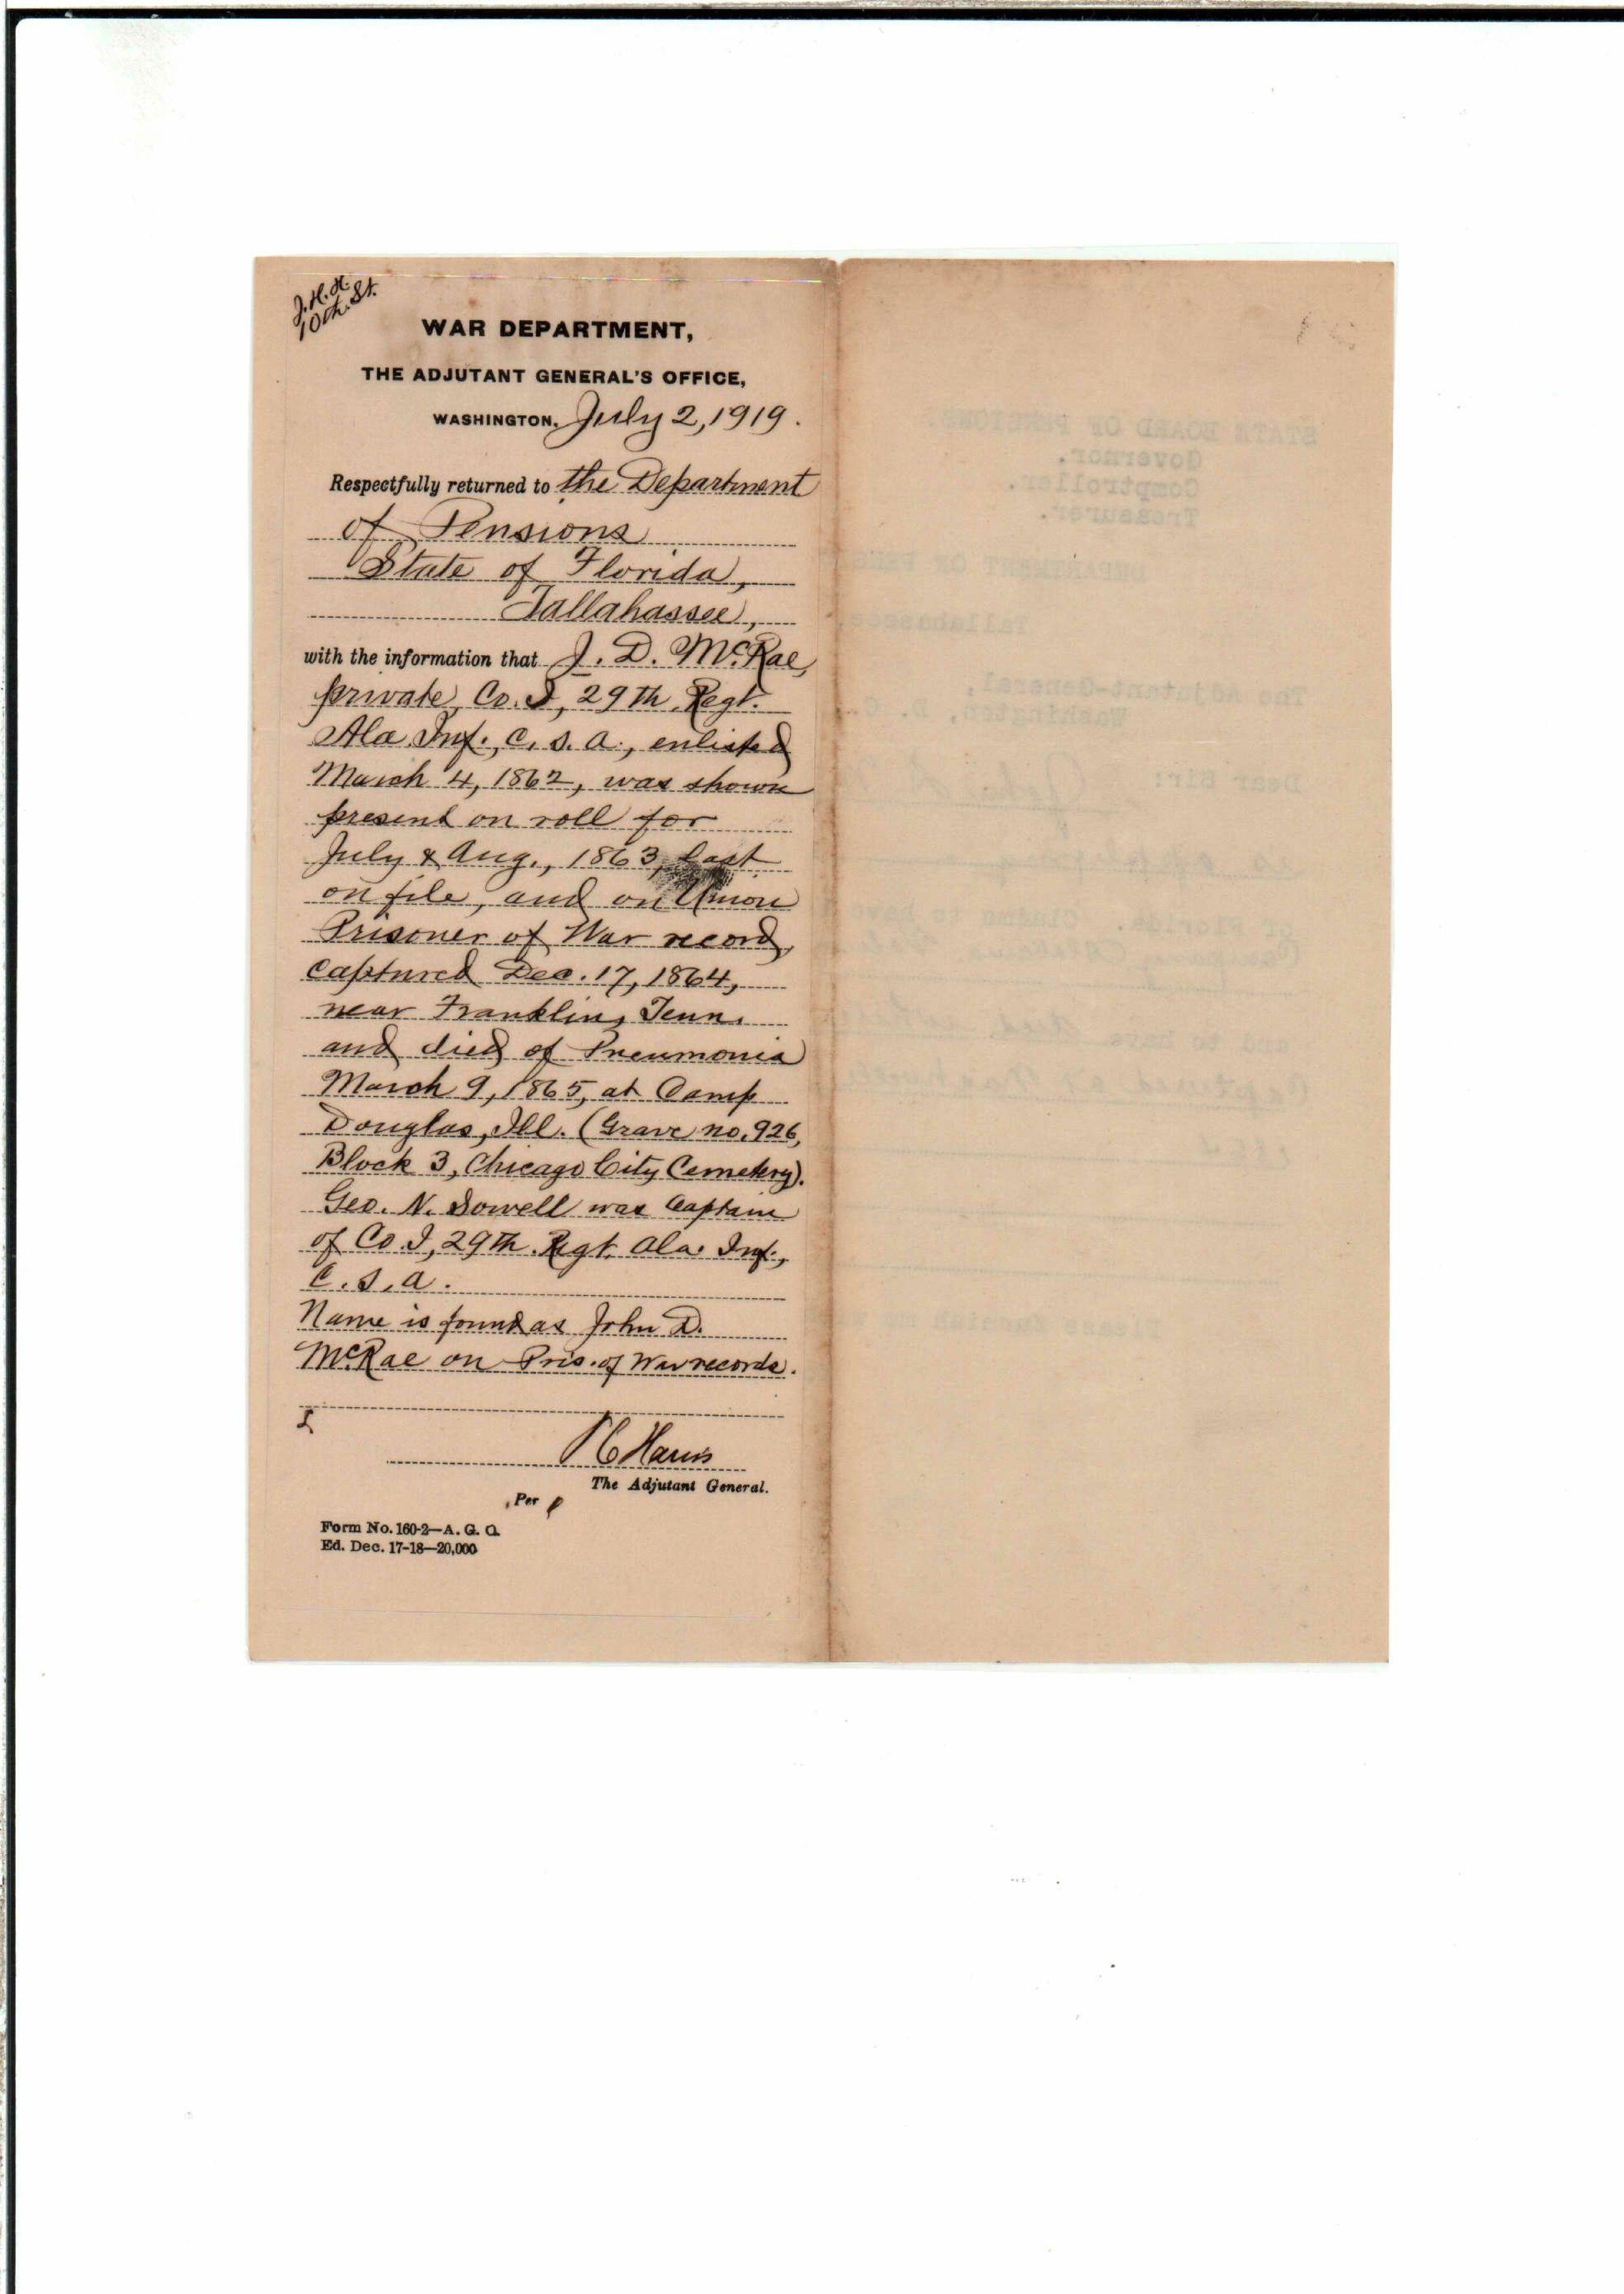 J.H.H.
10th. St.
WAR DEPARTMENT,
THE ADJUTANT GENERAL'S OFFICE,
WASHINGTON, July 2, 1919.
Respectfully returned to the Department
of Pensions
State of Florida,
Tallahassee,
with the information that J. D. McRae,
private, Co. I, 29th Regt.
Ala. Inf., C. S. A., enlisted
March 4, 1862, was shown
present on roll for
July & Aug., 1863, last
on file, and on Union
Prisoner of War record,
captured Dec. 17, 1864,
near Franklin, Tenn.
and died of Pneumonia
March 9, 1865, at Camp
Douglas, Ill. (Grave no. 926,
Block 3, Chicago City Cemetery).
Geo. N. Sowell was Captain
of Co. I, 29th Regt. Ala. Inf.,
C. S. A.
Name is found as John D.
McRae on Pris. of War records.
P C Harris
The Adjutant General.
Per
Form No. 160-2—A. G. O.
Ed. Dec. 17-18—20,000
STATE BOARD OF PENSIONS.
Governor.
Comptroller.
Treasurer.
DEPARTMENT OF
Tallahassee,
The Adjutant-General,
Washington, D. C.
Dear Sir: John
of Florida. Claims to have
and to have
Please furnish